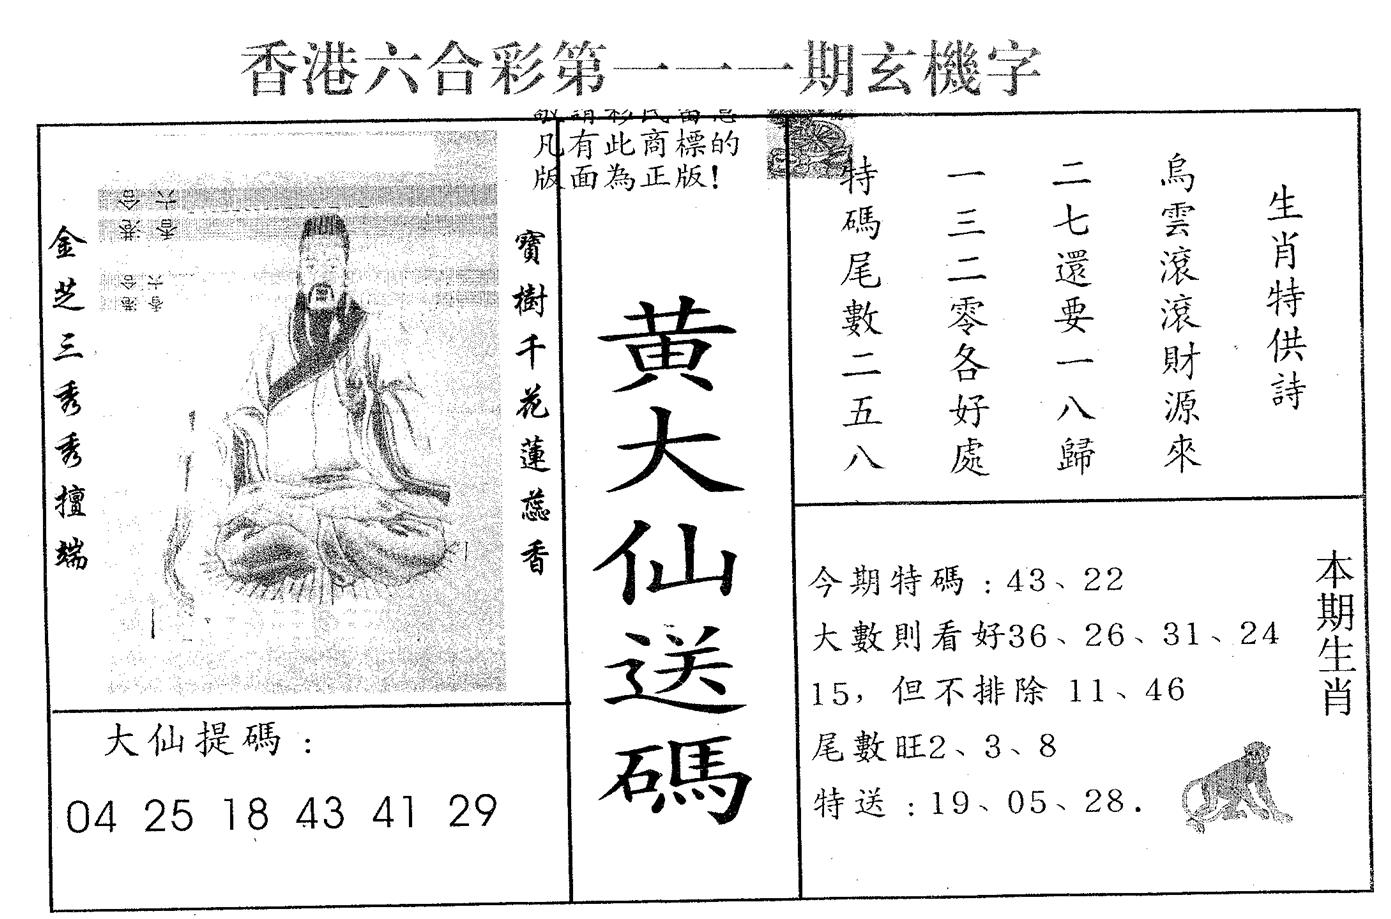 香港六合彩第一一一期玄機字
凡有此商標的
版面為正版!
生肖特供詩
烏雲滾滾財源來
二七還要一八歸
一三二零各好處
特碼尾數二五八
寶樹千花蓮蕊香
金芝三秀秀擅端
六合
香港
六合
香港
黄大仙送碼
大仙提碼：
04 25 18 43 41 29
本期生肖
今期特碼：43、22
大數則看好36、26、31、24
15，但不排除 11、46
尾數旺2、3、8
特送：19、05、28.